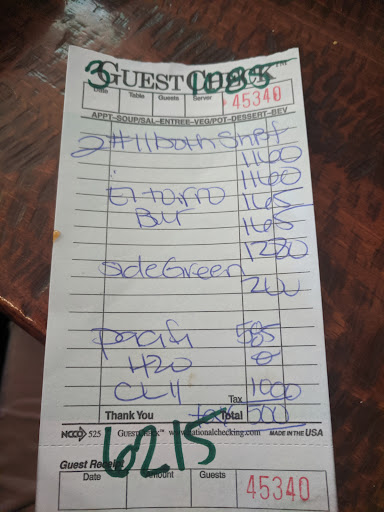 3 GUEST CHECK™ 1085
Date Table Guests Server 45340
APPT-SOUP/SAL-ENTREE-VEG/POT-DESSERT-BEV
2 #11 both Sh Bf
1160
1160
El torro 165
Bur 165
1280
side Green
200
585
H20 0
Tax 1000
Thank You tax Total 500
NCO 525 GUEST CHECK™ www.nationalchecking.com MADE IN THE USA
6215
Guest Receipt
Date Amount Guests 45340